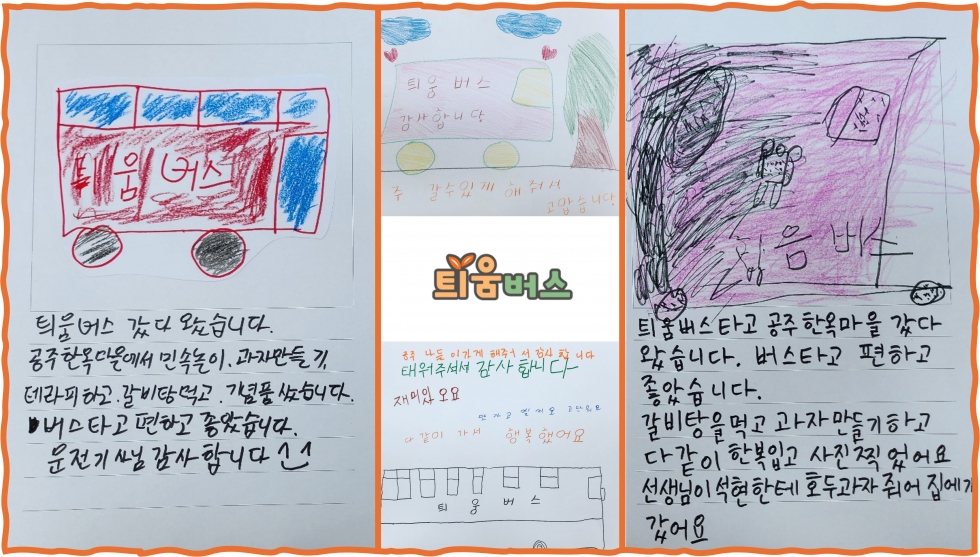 틔움버스
틔움버스 갔다 왔습니다.
공주한옥마을에서 민속놀이. 과자만들기,
테라피하고. 갈비탕먹고. 기념품 샀습니다.
버스타고 편하고 좋았습니다.
운전기사님 감사합니다
틔움 버스
감사합니다
주 갈수있게 해줘서
고맙습니다
틔움버스
해주어서 감사합니다
태워주셔서 감사합니다
재미있 오요
다같이 가서 행복했어요
틔움버스
틔움버스
틔움버스타고 공주한옥마을 갔다
왔습니다. 버스타고 편하고
좋았습니다.
갈비탕을먹고 과자만들기하고
다같이 한복입고 사진찍었어요
선생님이석현한테 호두과자 줘어 집에가
갔어요